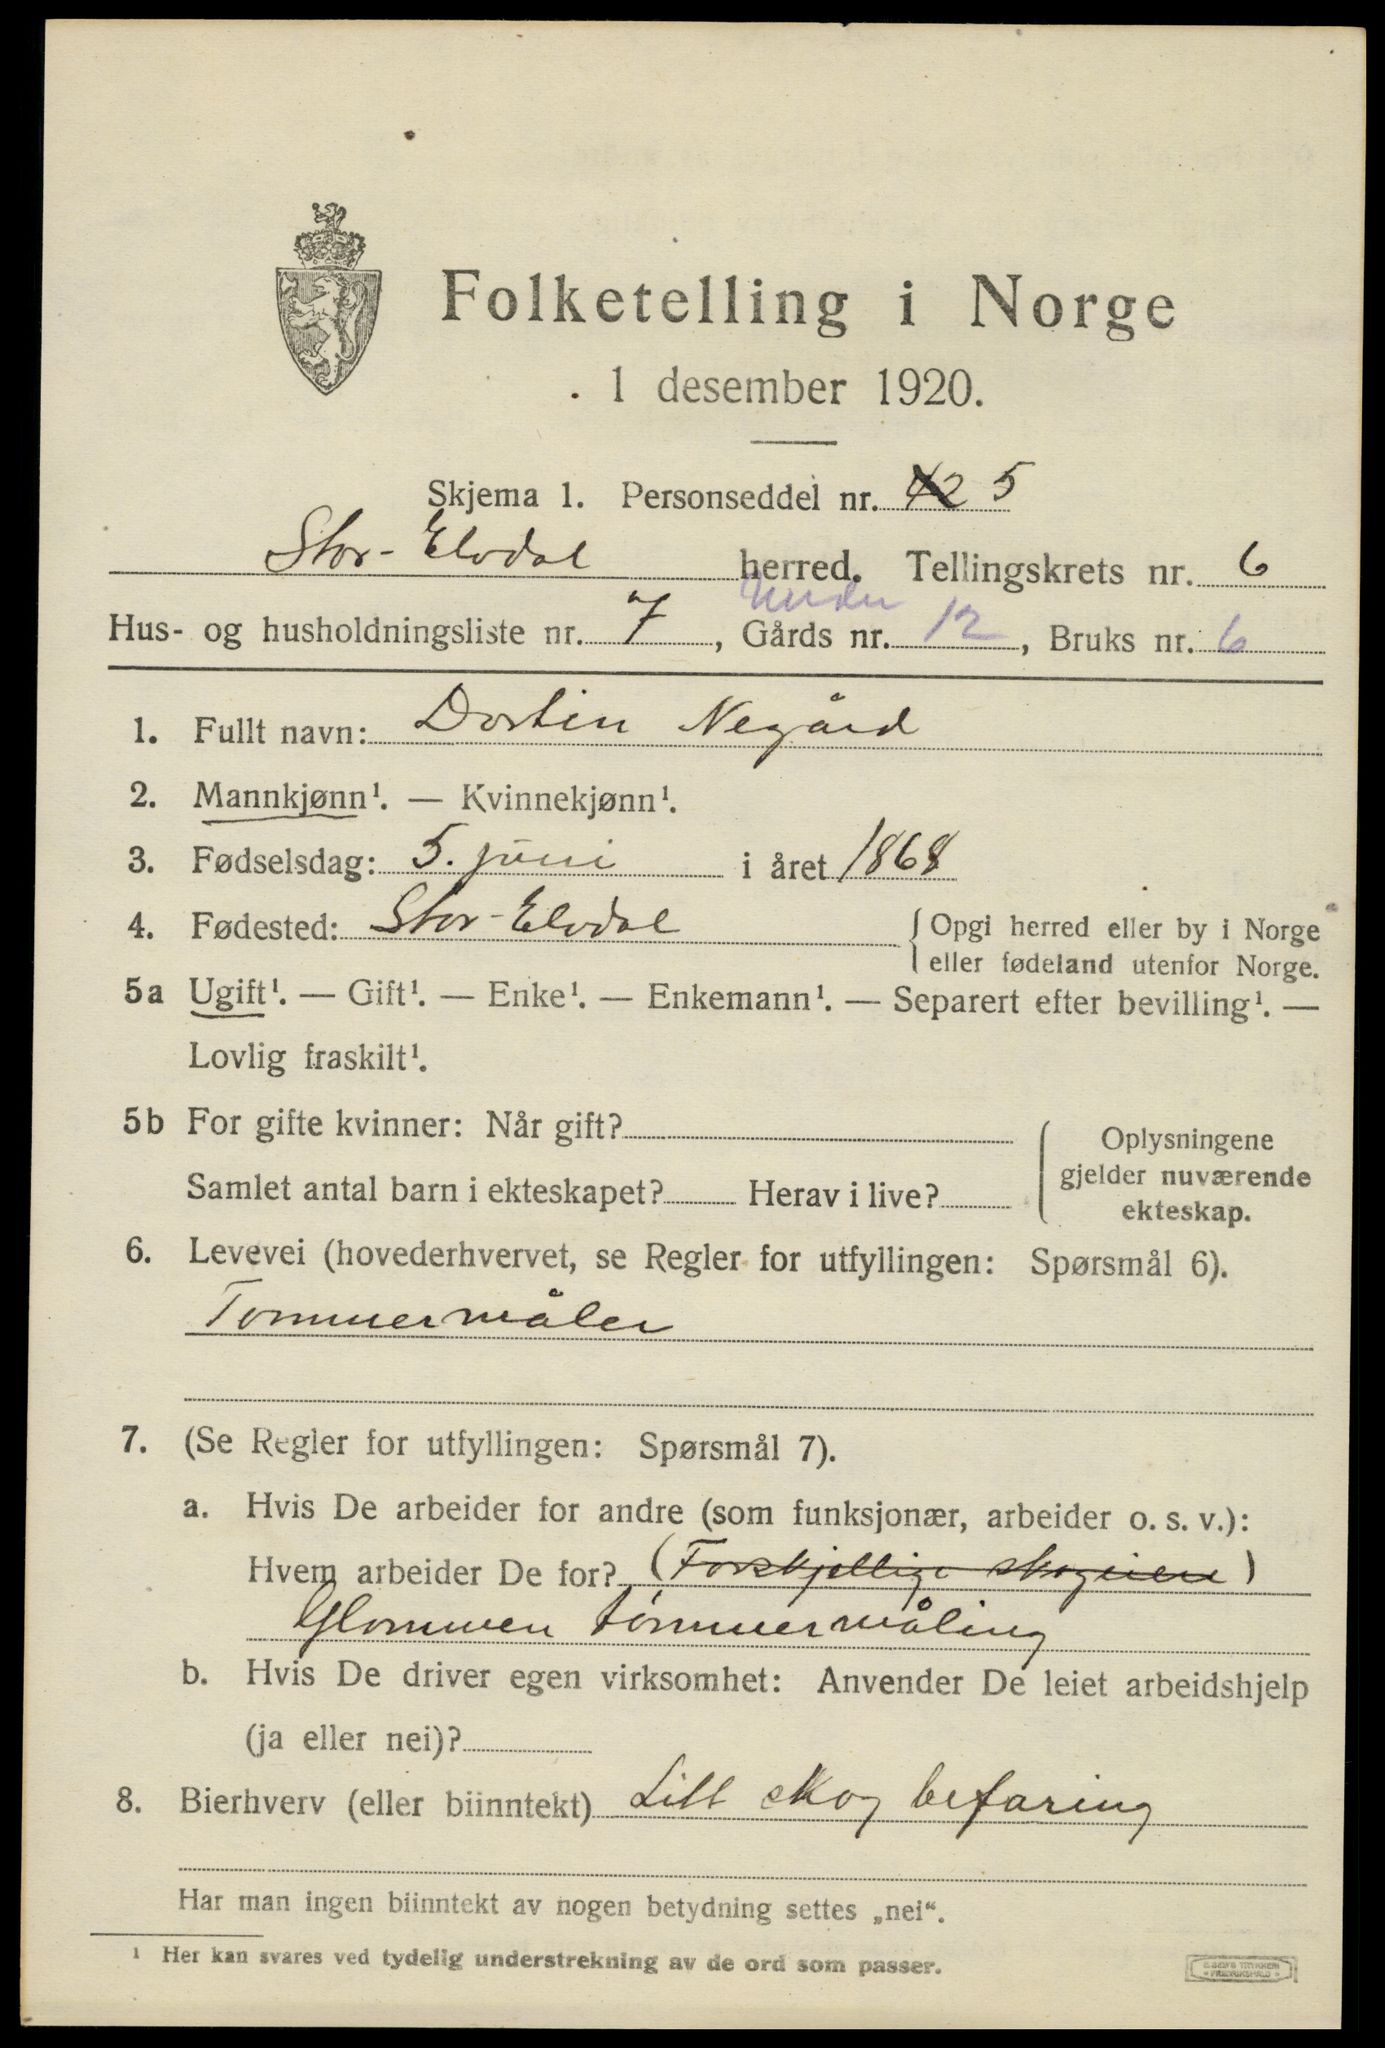 Folketelling i Norge
1 desember 1920.
Skjema 1. Personseddel nr. 42 5
Stor-Elvdal herred. Tellingskrets nr. 6
Under
Hus- og husholdningsliste nr. 7, Gårds nr. 12, Bruks nr. 6
1. Fullt navn: Dortin Negård
2. Mannkjønn¹. — Kvinnekjønn¹.
3. Fødselsdag: 5. juni i året 1868
4. Fødested: Stor-Elvdal { Opgi herred eller by i Norge
eller fødeland utenfor Norge.
5a Ugift¹. — Gift¹. — Enke¹. — Enkemann¹. — Separert efter bevilling¹. —
Lovlig fraskilt¹.
5b For gifte kvinner: Når gift?
Samlet antal barn i ekteskapet? Herav i live?
{ Oplysningene
gjelder nuværende
ekteskap.
6. Levevei (hovederhvervet, se Regler for utfyllingen: Spørsmål 6).
Tommermåler
7. (Se Regler for utfyllingen: Spørsmål 7).
a. Hvis De arbeider for andre (som funksjonær, arbeider o. s. v.):
Hvem arbeider De for? (Forskjellige skogeiere)
Glommen tømmermåling
b. Hvis De driver egen virksomhet: Anvender De leiet arbeidshjelp
(ja eller nei)?
8. Bierhverv (eller biinntekt) Litt skog befaring
Har man ingen biinntekt av nogen betydning settes „nei“.
¹ Her kan svares ved tydelig understrekning av de ord som passer.